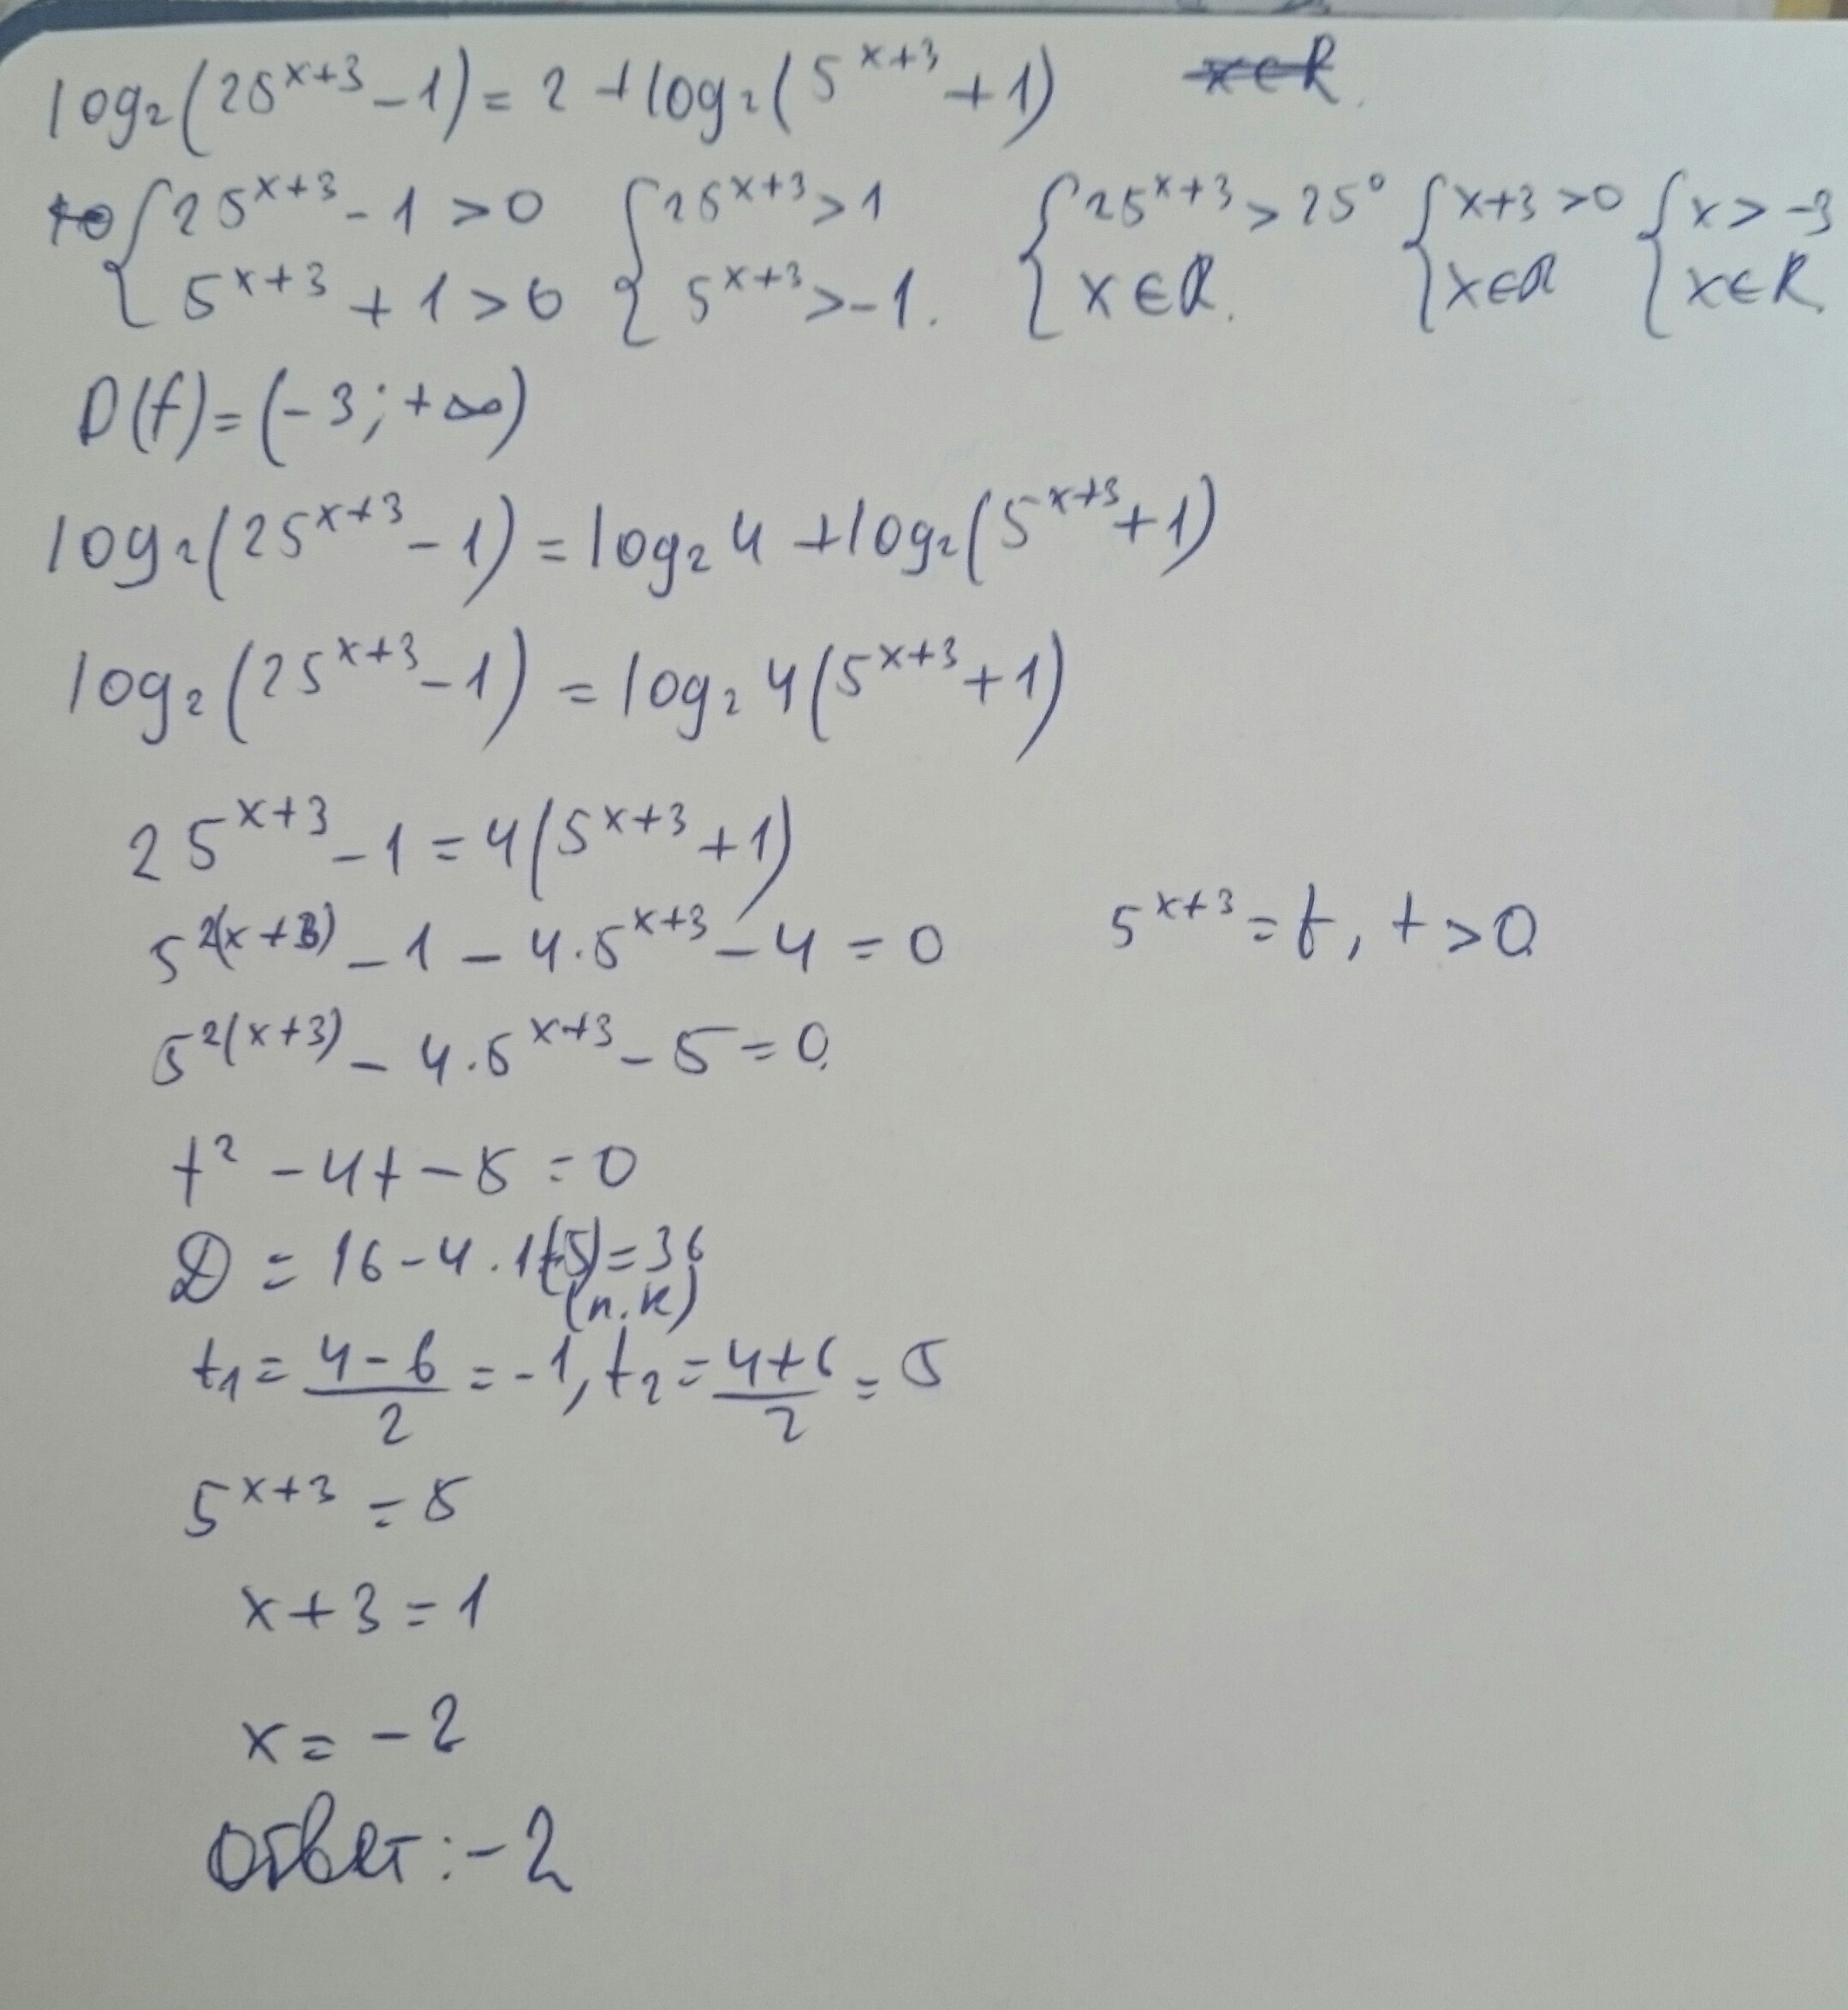 log₂(25^(x+3) - 1) = 2 + log₂(5^(x+3) + 1) x∈R.
{ 25^(x+3) - 1 > 0 { 25^(x+3) > 1 { 25^(x+3) > 25⁰ { x+3 > 0 { x > -3
{ 5^(x+3) + 1 > 0 { 5^(x+3) > -1. { x∈R. { x∈R { x∈R.
D(f) = (-3; +∞)
log₂(25^(x+3) - 1) = log₂ 4 + log₂(5^(x+3) + 1)
log₂(25^(x+3) - 1) = log₂ 4(5^(x+3) + 1)
25^(x+3) - 1 = 4(5^(x+3) + 1)
5^(2(x+3)) - 1 - 4·5^(x+3) - 4 = 0 5^(x+3) = t, t > 0
5^(2(x+3)) - 4·5^(x+3) - 5 = 0
t² - 4t - 5 = 0
D = 16 - 4·1(-5) = 36
(п.к)
t₁ = (4-6)/2 = -1, t₂ = (4+6)/2 = 5
5^(x+3) = 5
x + 3 = 1
x = -2
Ответ: -2